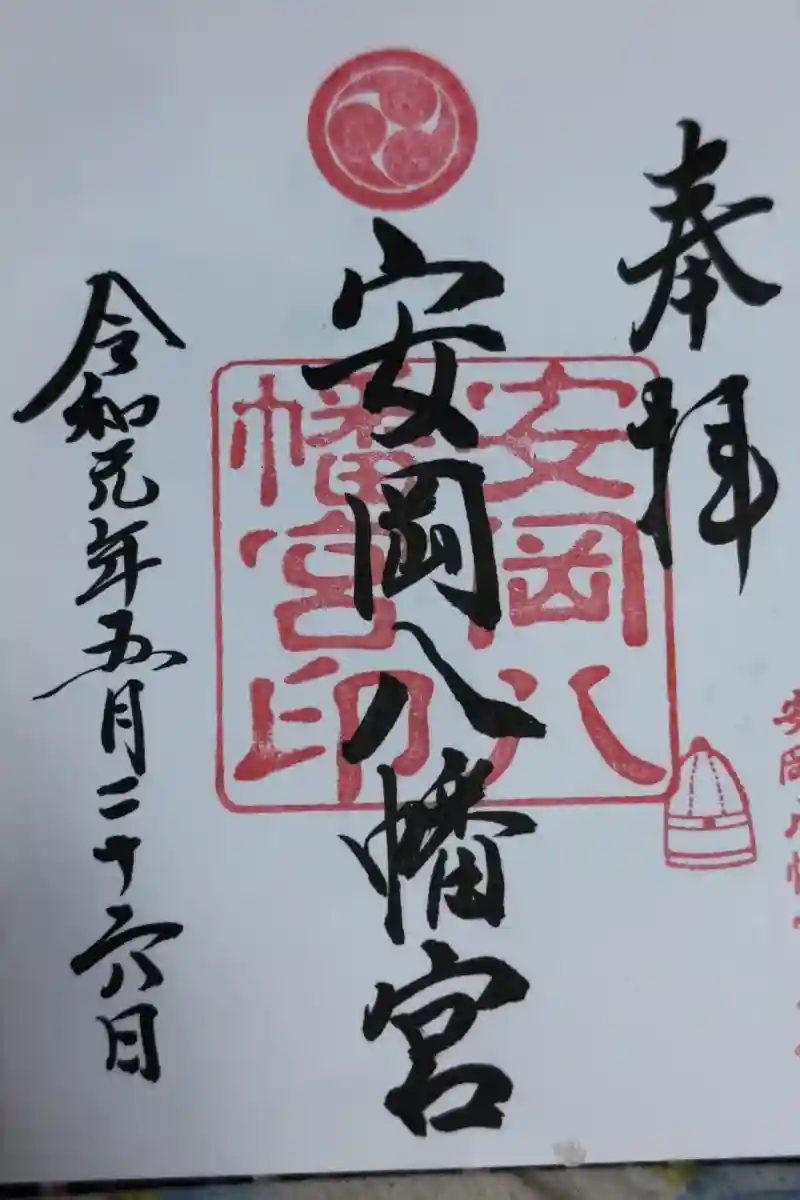 奉拝
安岡八幡宮
安岡八
幡宮印
令和元年五月二十六日
安岡八幡宮